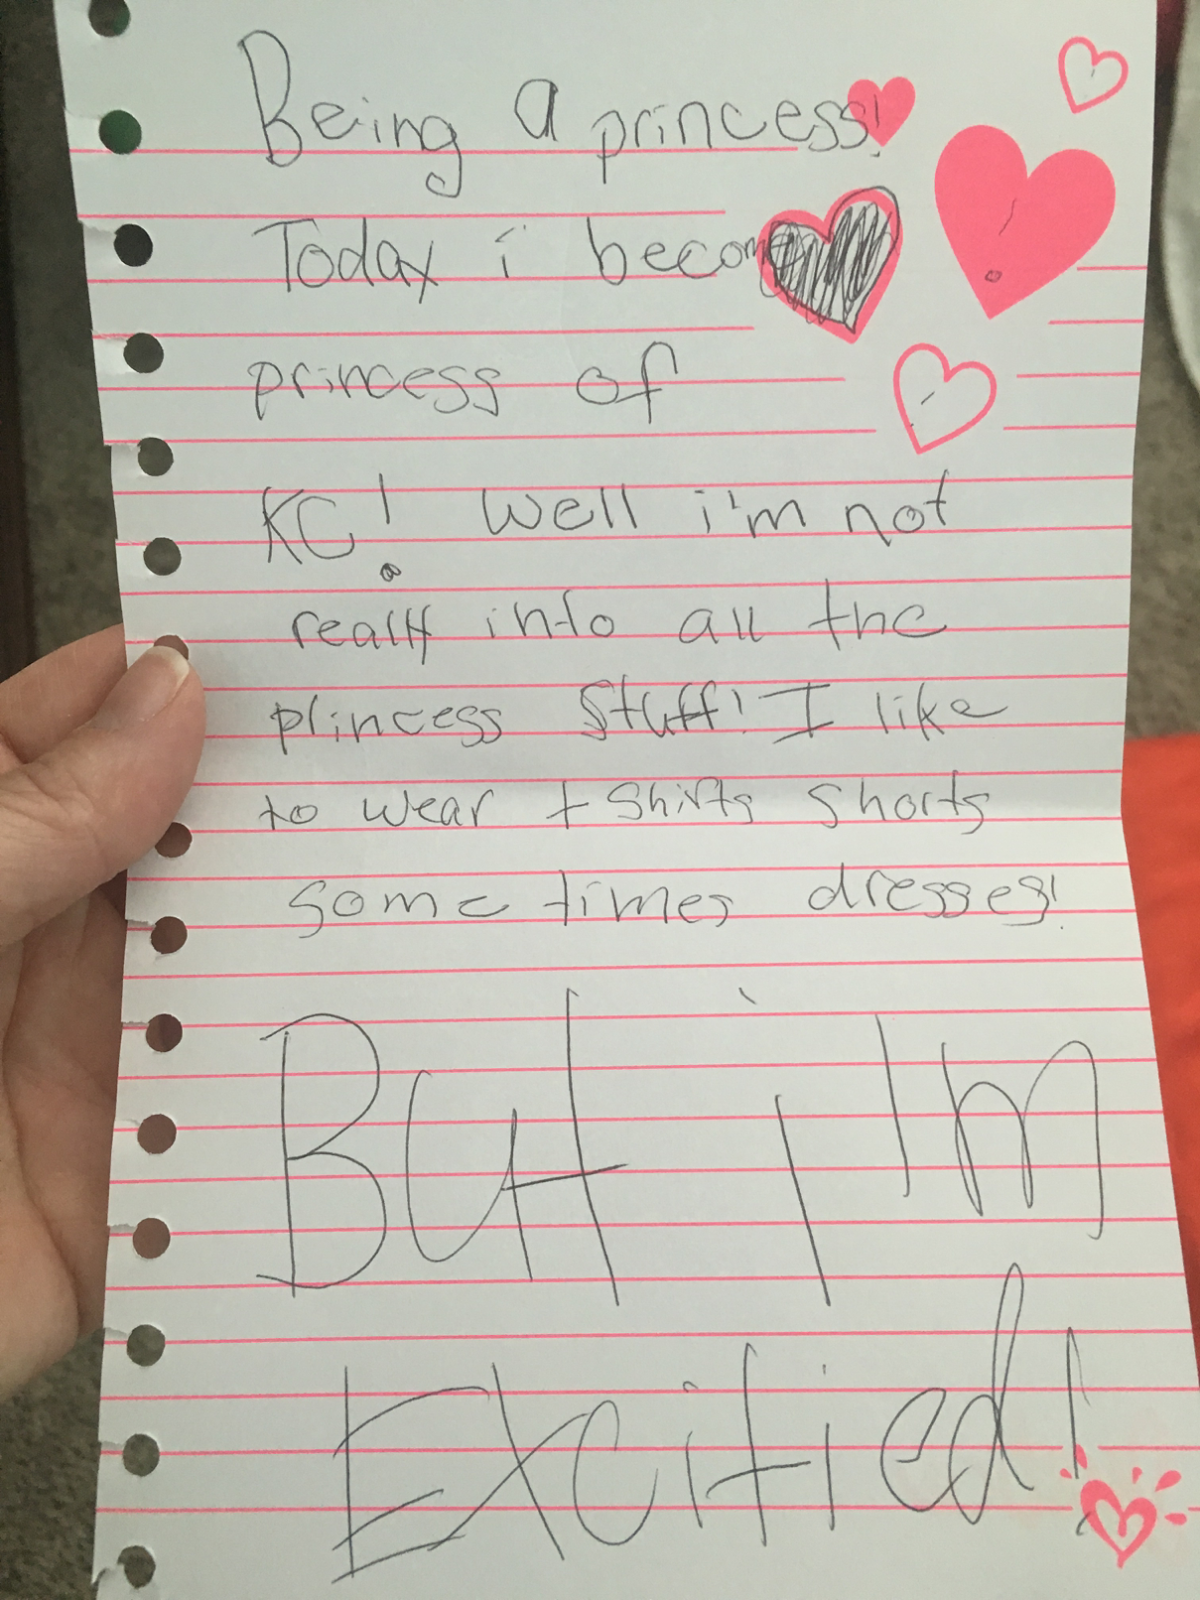 Being a princess!
Today i become
princess of
KC! Well i'm not
really into all the
princess stuff! I like
to wear t shirts shorts
some times dresses!
But i'm
Excitied!